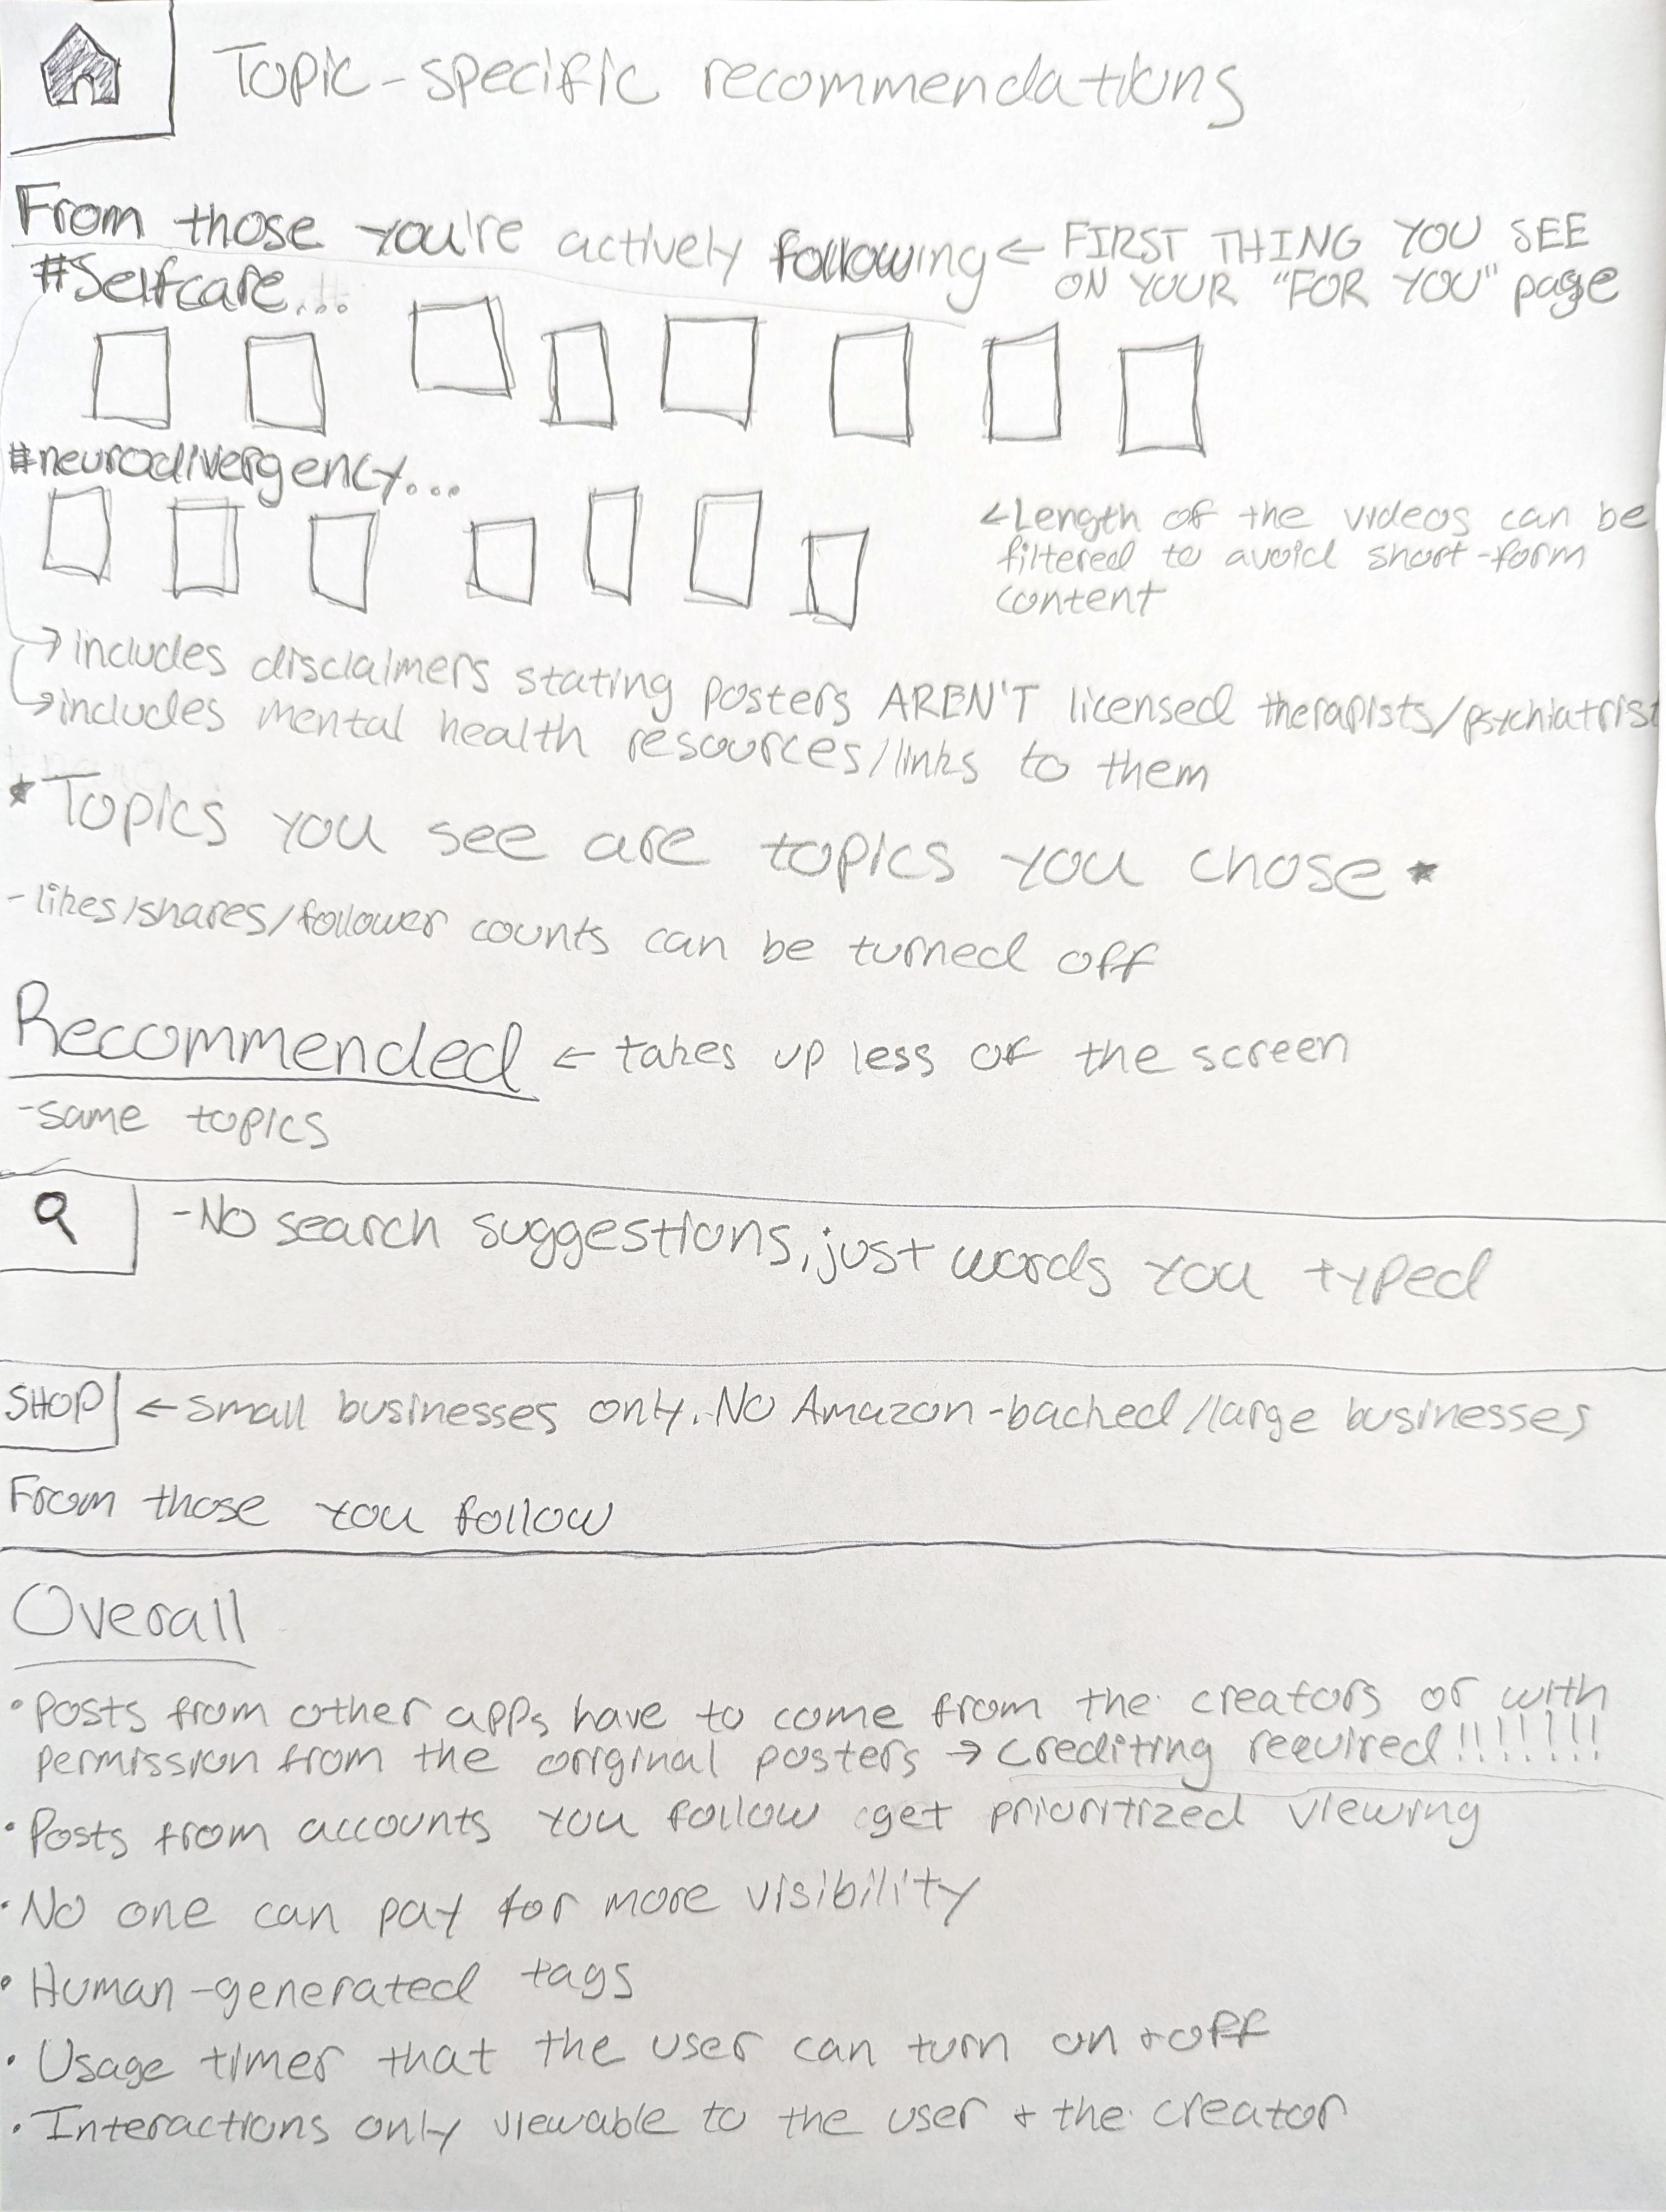 Topic-specific recommendations
From those you're actively following ← FIRST THING YOU SEE
ON YOUR "FOR YOU" page
#Selfcare...
#neurodivergency...
←Length of the videos can be
filtered to avoid short-form
content
→includes disclaimers stating posters AREN'T licensed therapists/psychiatrist
→includes mental health resources/links to them
*Topics you see are topics you chose*
-likes/shares/follower counts can be turned off
Recommended ← takes up less of the screen
-same topics
-No search suggestions, just words you typed
SHOP ← small businesses only. No Amazon-backed/large businesses
From those you follow
Overall
• Posts from other apps have to come from the creators or with
permission from the original posters → crediting required!!!!!!!
• Posts from accounts you follow get prioritized viewing
• No one can pay for more visibility
• Human-generated tags
• Usage timer that the user can turn on + off
• Interactions only viewable to the user + the creator